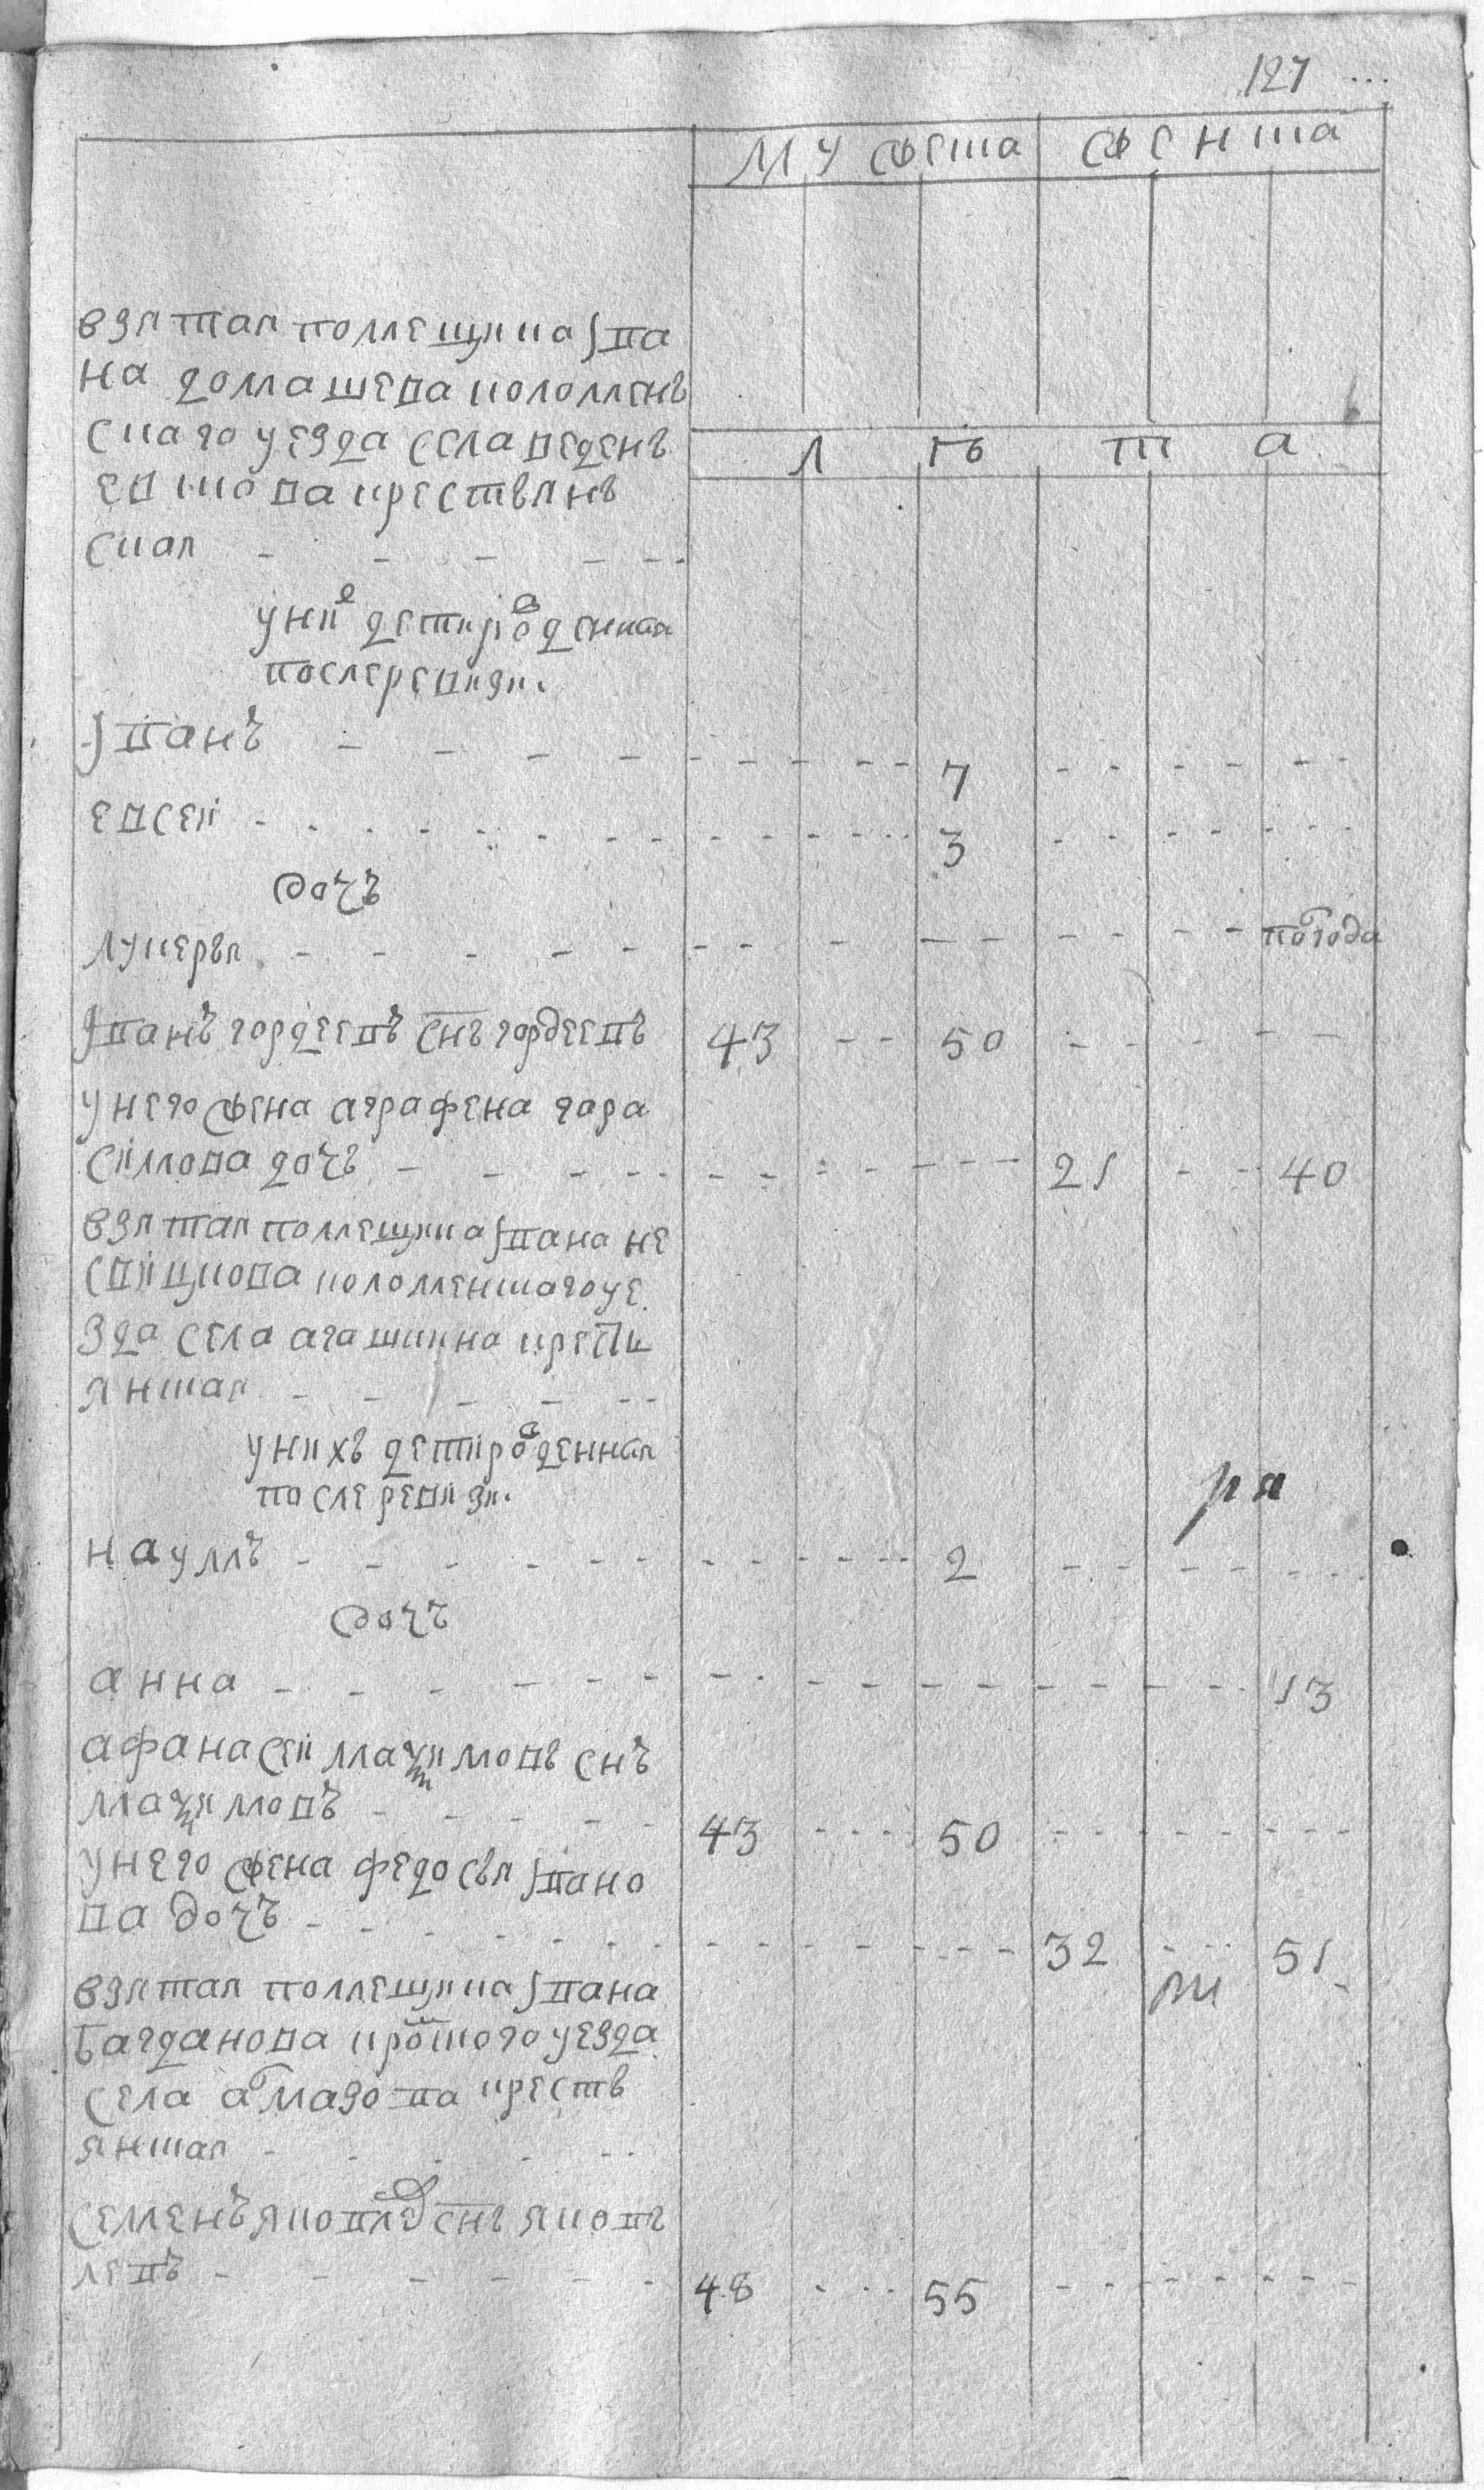 127
мужеска женска
взятая помещика Iва
на домашева коломенъ
скаго уезда села веденъ
евскова крестьянъ
ская
лѣта
у них дети рожденная
после ревизи.
Iванъ 7
евсей 3
дочь
лукерья полгода
Iванъ гордеевъ снъ гордеевъ 43 50
у него жена аграфена гара
сimова дочь 21 40
взятая помещика Iвана не
свицкова коломенскаго уе
зда села агашкина крестъ
янская
у нихъ дети рожденная
после ревизи.
ря
наумъ 2
дочь
анна 13
афанасей максимовъ снъ
максимовъ 43 50
у него жена федосья Iвано
ва дочь 32 51
взятая помещика Iвана
багданова кротскаго уезда
села алмазова крестъ
янская
семенъ яковлев снъ яков
левъ 48 55